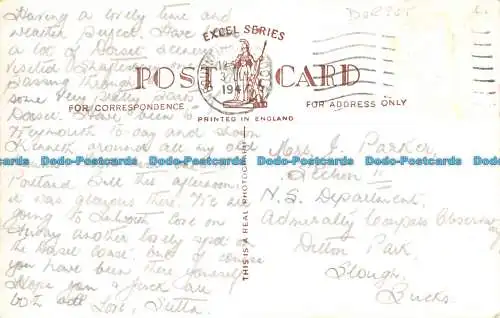 DORSET
Having a lovely time and
weather perfect. Have
a lot of Dorset scenery
visited Shaftesbury
passing through
some very pretty parts
Dorset. Have been to
Weymouth to-day and shown
Kenneth around all my old
Portland Bill this afternoon,
it was glorious there. We are
going to Lulworth Cove on
Friday another lovely spot on
the Dorset coast, but of course
you have been there yourself
Hope you & are
both well Love,
EXCEL SERIES
POST CARD
FOR CORRESPONDENCE
FOR ADDRESS ONLY
PRINTED IN ENGLAND
THIS IS A REAL PHOTOGRAPH
194
Mrs. J. Parker,
Section II
N.S. Department,
Admiralty Compass Observatory
Ditton Park,
Slough,
Bucks.
Dodo-Postcards Dodo-Postcards Dodo-Postcards Dodo-Postcards Dodo-Postcards